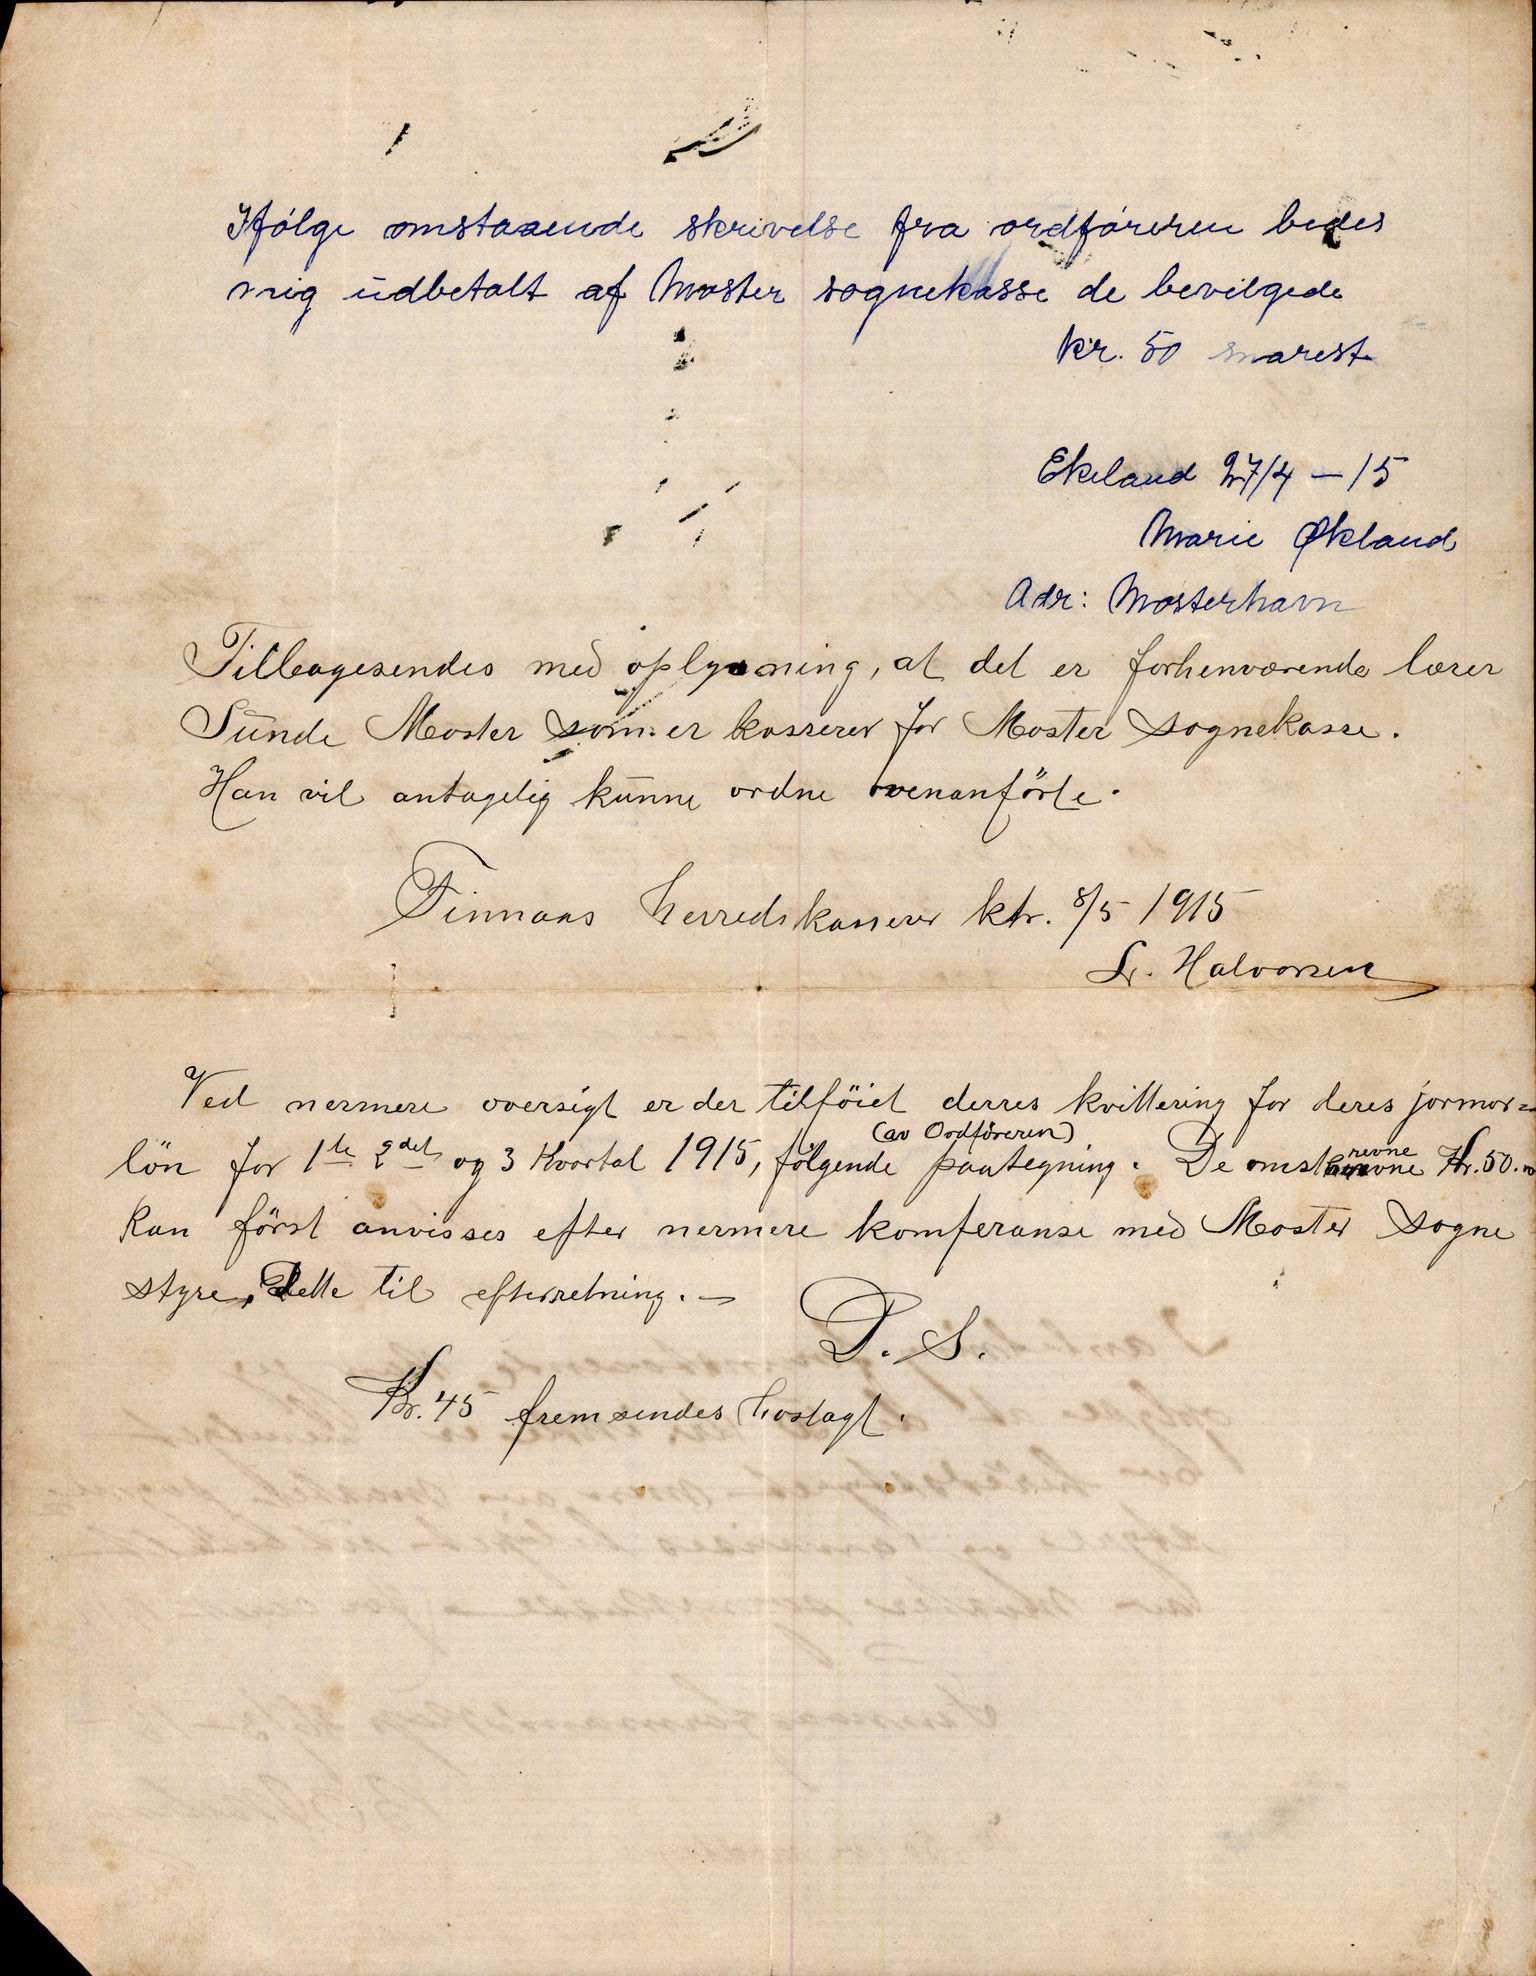 Ifølge omstaaende skrivelse fra ordføreren bedes
mig udbetalt af Moster sognekasse de bevilgede
kr. 50 snarest
Ekeland 27/4 – 15
Marie Økland
Adr: Mosterhavn
Tilbagesendes med oplysning, at det er forhenværende lærer
Sunde Moster som er kasserer for Moster Sognekasse.
Han vil antagelig kunne ordne ovenanförte.
Finnaas herredskasserer ktr. 8/5 1915
L. Halvorsen
Ved nermere oversigt er der tilföiet derres kvittering for deres jormor=
lön for 1ste 2det og 3 Kvartal 1915, følgende (av Ordföreren) paategning. De omskrevne Kr. 50.
kan först anvisses efter nermere komferanse med Moster Sogne
styre, Dette til efterretning. –
D. S.
Kr. 45 fremsendes hoslagt.